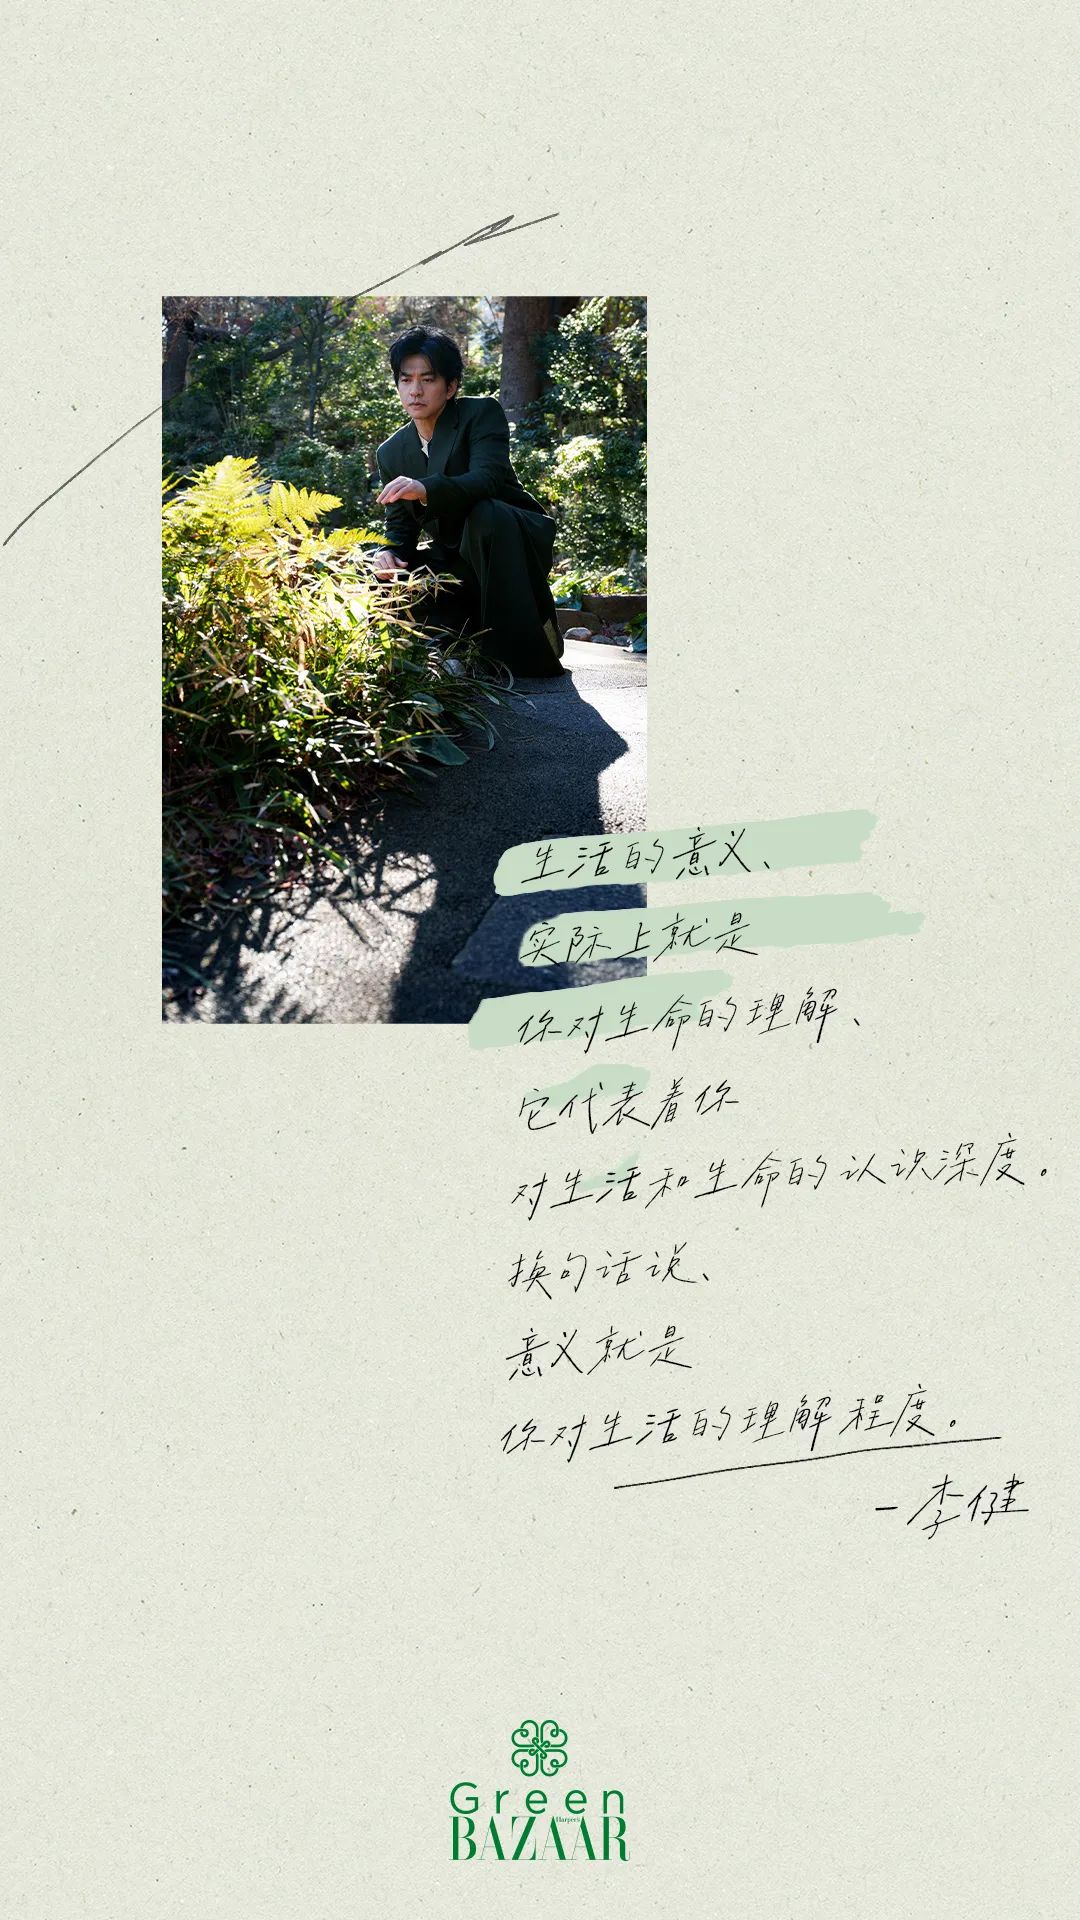 生活的意义、
实际上就是
你对生命的理解、
它代表着你
对生活和生命的认识深度。
换句话说、
意义就是
你对生活的理解程度。
-李健
Green
Harper's
BAZAAR